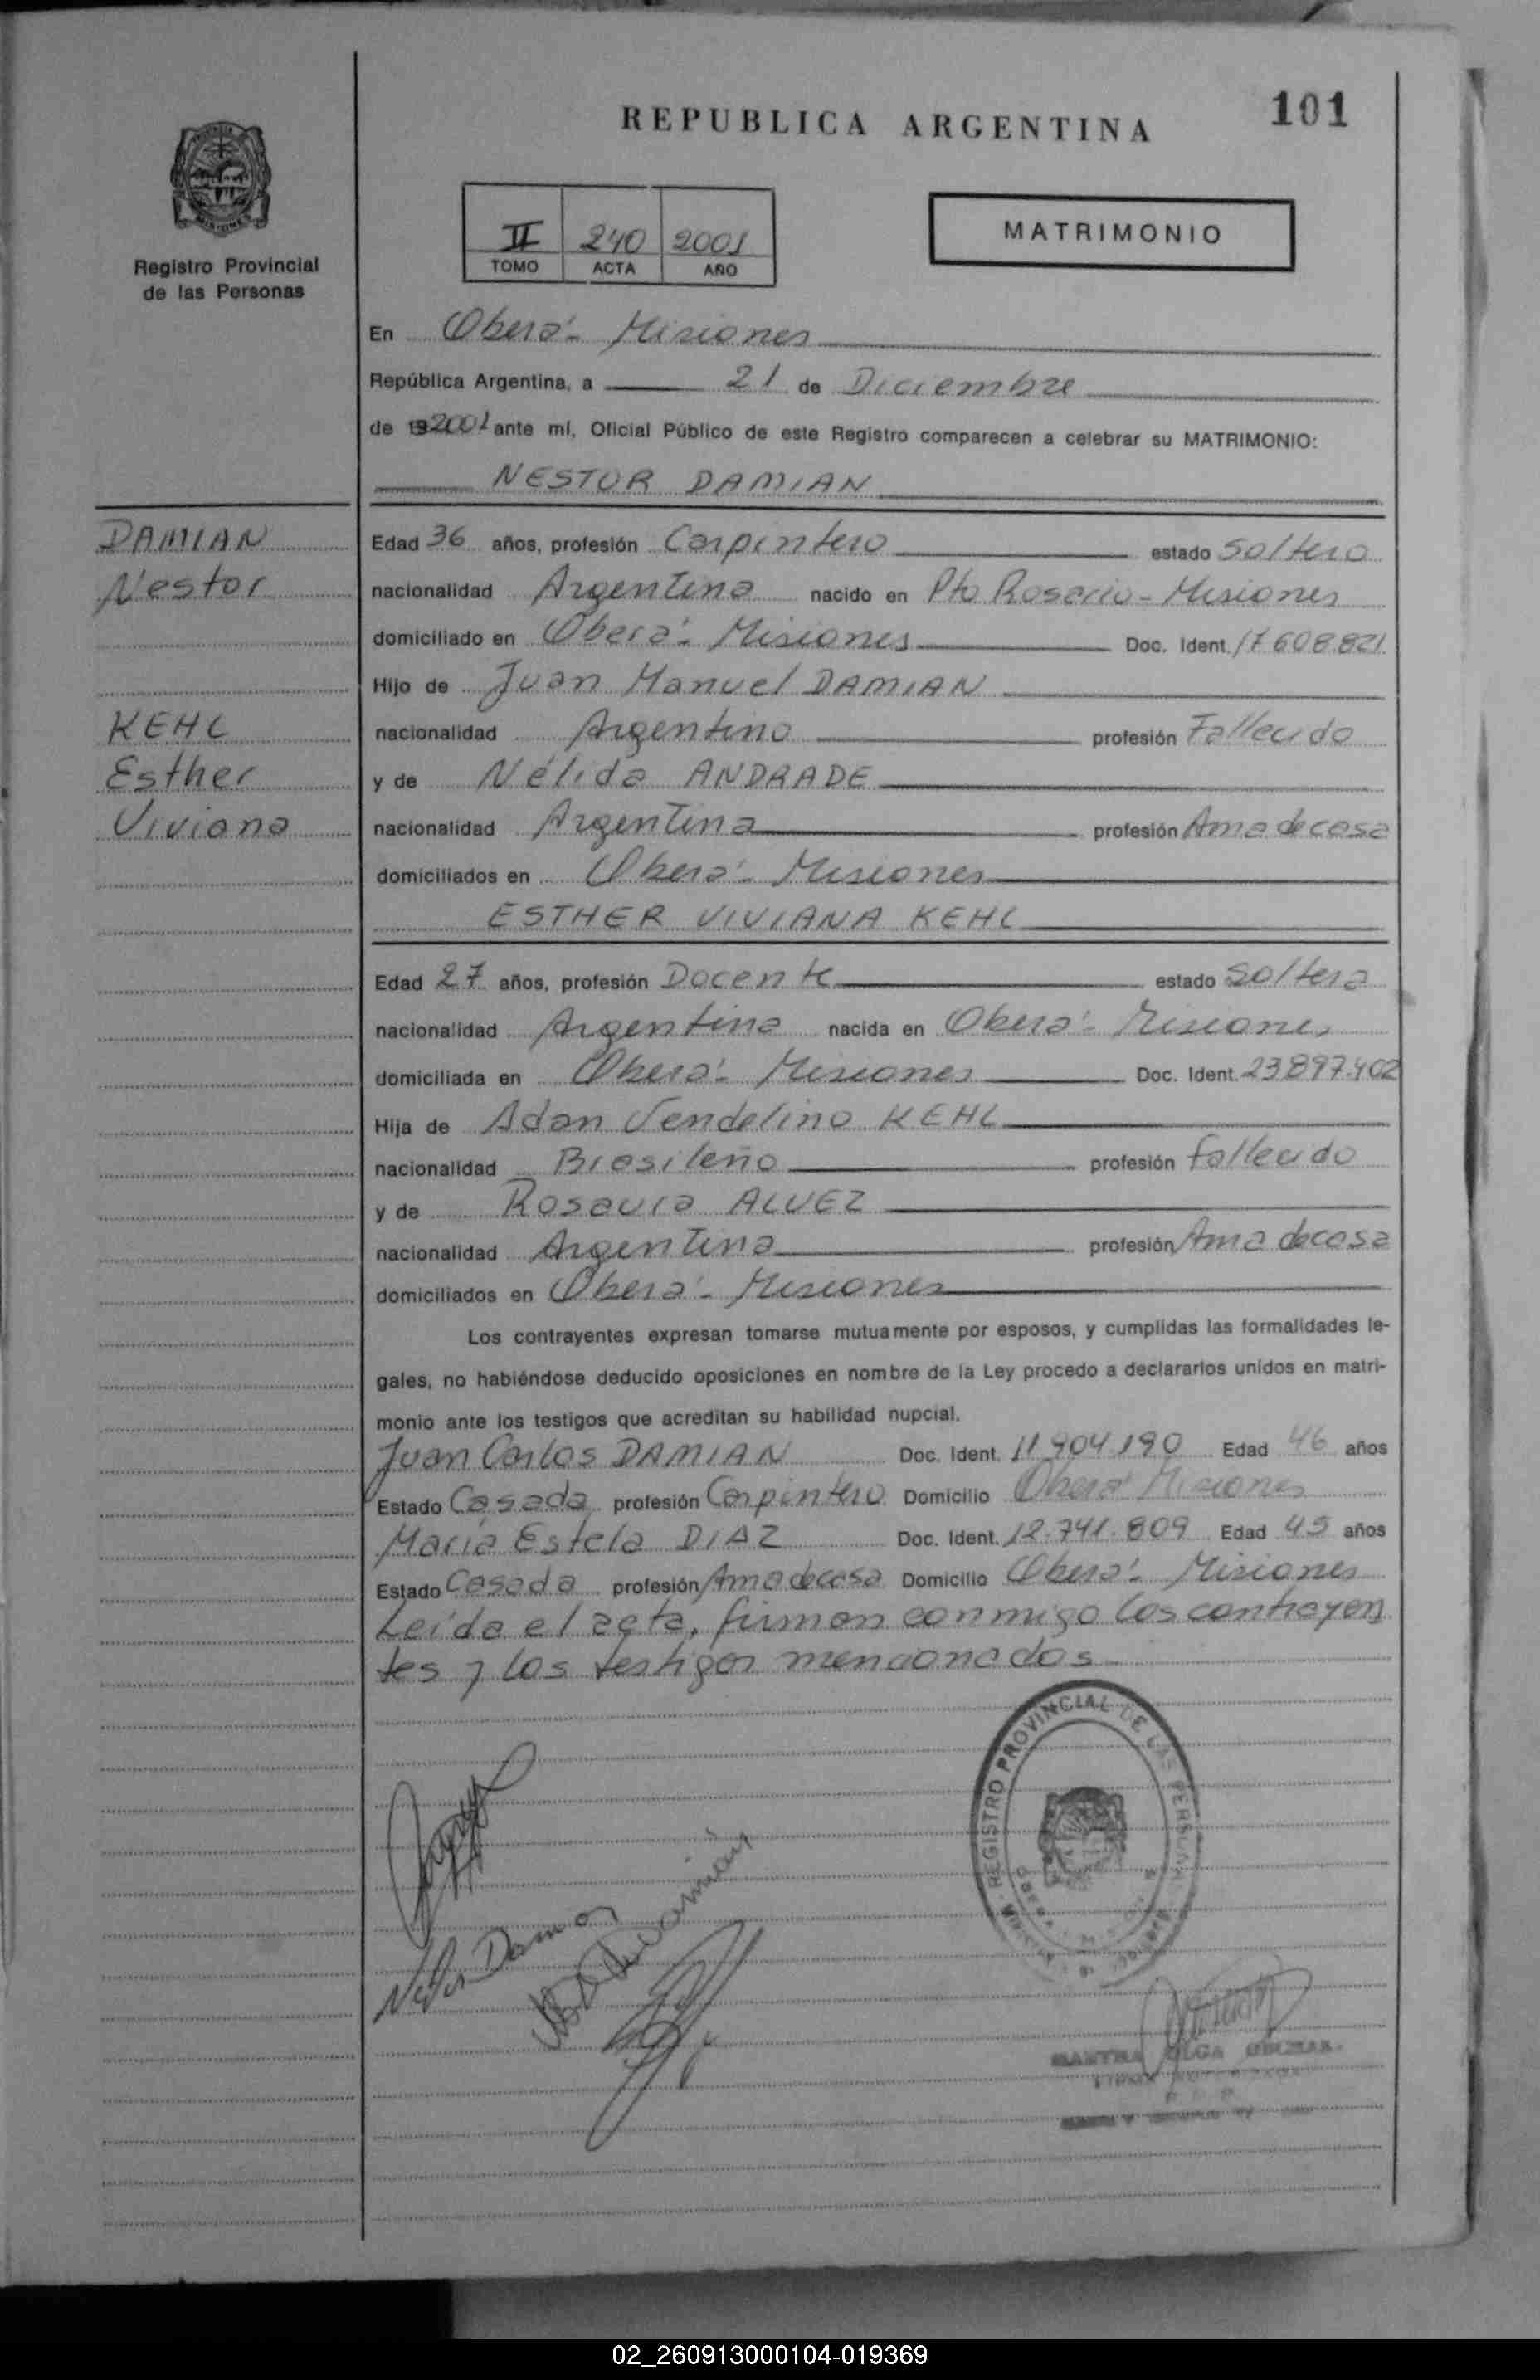 REPUBLICA ARGENTINA
101
Registro Provincial
de las Personas
II 240 2001
TOMO ACTA AÑO
MATRIMONIO
En Oberá - Misiones
República Argentina, a 21 de Diciembre
de 2001 ante mí, Oficial Público de este Registro comparecen a celebrar su MATRIMONIO:
NESTOR DAMIAN
DAMIAN
Nestor
KEHL
Esther
Viviana
Edad 36 años, profesión Carpintero estado Soltero
nacionalidad Argentina nacido en Pto Rosario - Misiones
domiciliado en Oberá - Misiones Doc. Ident. 17.608.821
Hijo de Juan Manuel DAMIAN
nacionalidad Argentino profesión Fallecido
y de Nélida ANDRADE
nacionalidad Argentina profesión Ama de casa
domiciliados en Oberá - Misiones
ESTHER VIVIANA KEHL
Edad 27 años, profesión Docente estado Soltera
nacionalidad Argentina nacida en Oberá - Misiones
domiciliada en Oberá - Misiones Doc. Ident. 23.897.402
Hija de Adan Vendelino KEHL
nacionalidad Brasileño profesión fallecido
y de Rosaura ALVEZ
nacionalidad Argentina profesión Ama de casa
domiciliados en Oberá - Misiones
Los contrayentes expresan tomarse mutuamente por esposos, y cumplidas las formalidades le-
gales, no habiéndose deducido oposiciones en nombre de la Ley procedo a declararlos unidos en matri-
monio ante los testigos que acreditan su habilidad nupcial.
Juan Carlos DAMIAN Doc. Ident. 11.904.190 Edad 46 años
Estado Casado profesión Carpintero Domicilio Oberá Misiones
María Estela DIAZ Doc. Ident. 12.741.809 Edad 45 años
Estado Casada profesión Ama de casa Domicilio Oberá - Misiones
Leída el acta, firman conmigo los contrayen
tes y los testigos mencionados
REGISTRO PROVINCIAL DE LAS PERSONAS
Nestor Damian
Damián
OLGA
02_260913000104-019369